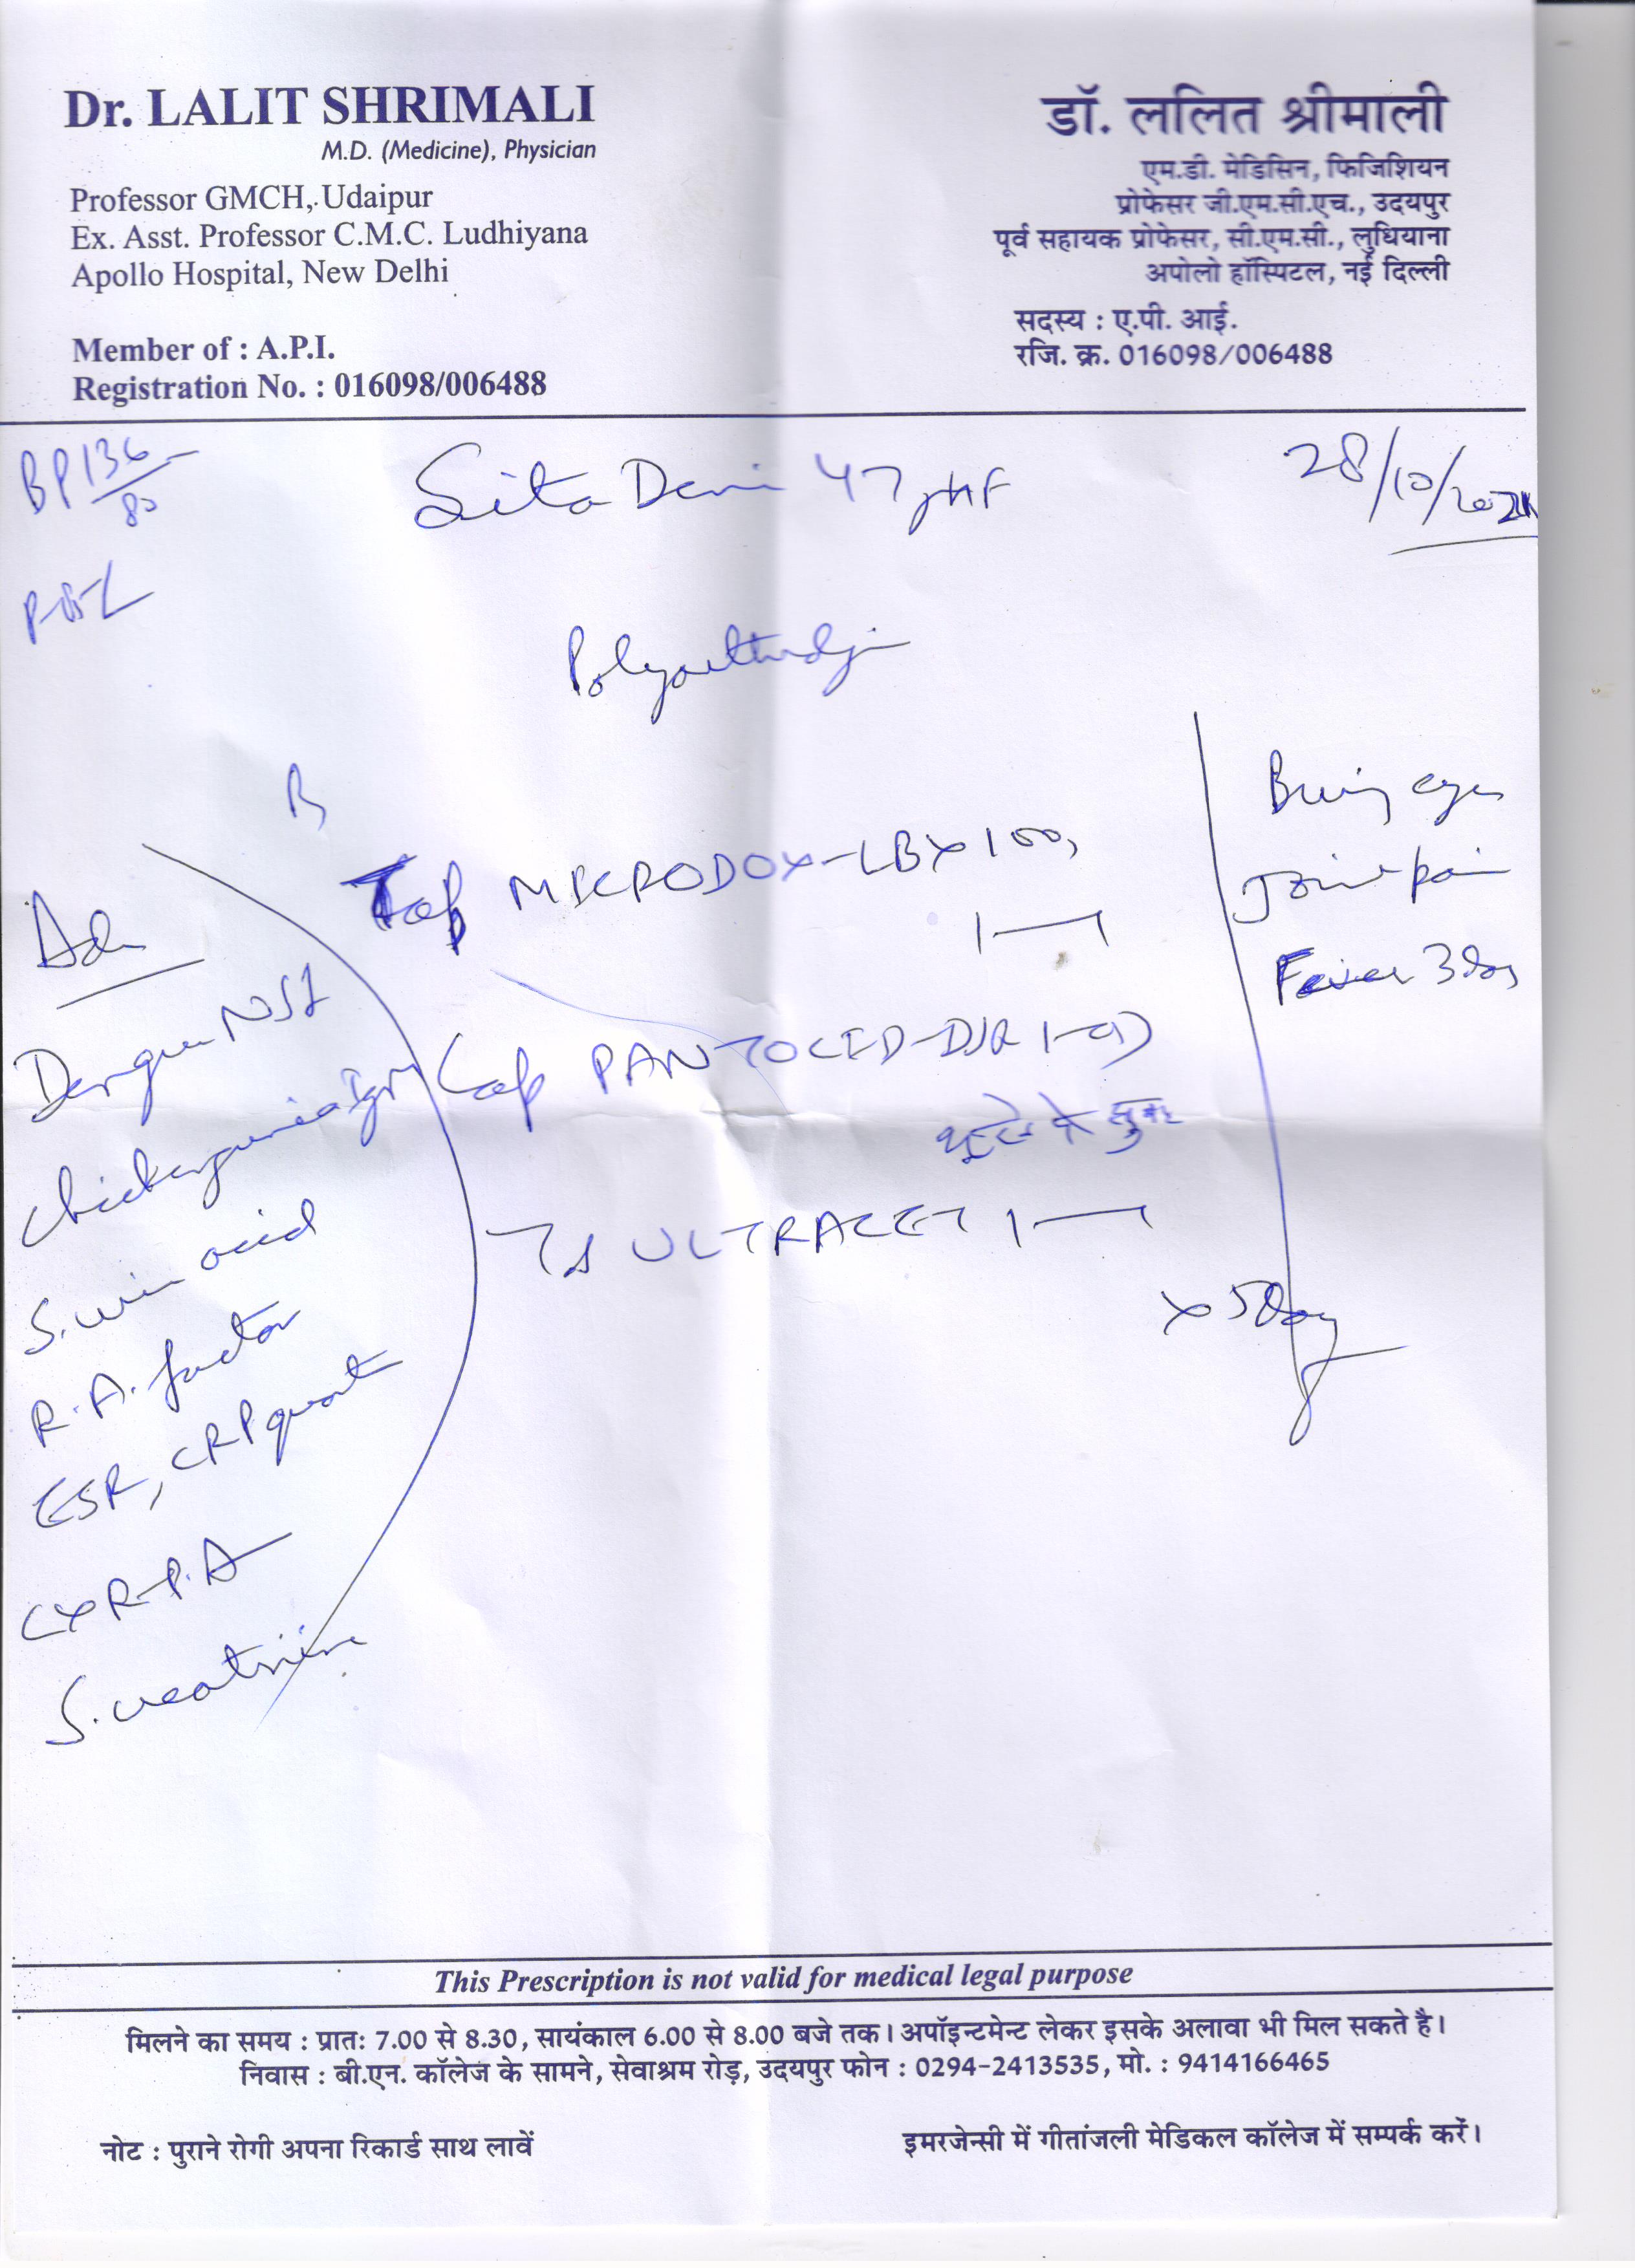 Dr. LALIT SHRIMALI
M.D. (Medicine), Physician
Professor GMCH, Udaipur
Ex. Asst. Professor C.M.C. Ludhiyana
Apollo Hospital, New Delhi
Member of : A.P.I.
Registration No. : 016098/006488
डॉ. ललित श्रीमाली
एम.डी. मेडिसिन, फिजिशियन
प्रोफेसर जी.एम.सी.एच., उदयपुर
पूर्व सहायक प्रोफेसर, सी.एम.सी., लुधियाना
अपोलो हॉस्पिटल, नई दिल्ली
सदस्य : ए.पी. आई.
रजि. क्र. 016098/006488
BP 136/80
Sita Devi 47
28/10/2021
Polyarthralgia
Burning eyes
Joint pain
Fever 3 days
Cap MICRODOX-LBX 100
1—1
Cap PANTOCID-DSR 1-OD
ULTRACET 1—1
x 5 day
Adv
Dengue NS1
Chickengunea IgM
S. uric acid
R.A. factor
ESR, CRP quant
CXR-P.A
S. creatinine
This Prescription is not valid for medical legal purpose
मिलने का समय : प्रातः 7.00 से 8.30, सायंकाल 6.00 से 8.00 बजे तक। अपॉइन्टमेन्ट लेकर इसके अलावा भी मिल सकते है।
निवास : बी.एन. कॉलेज के सामने, सेवाश्रम रोड़, उदयपुर फोन : 0294-2413535, मो. : 9414166465
नोट : पुराने रोगी अपना रिकार्ड साथ लावें
इमरजेन्सी में गीतांजली मेडिकल कॉलेज में सम्पर्क करें।